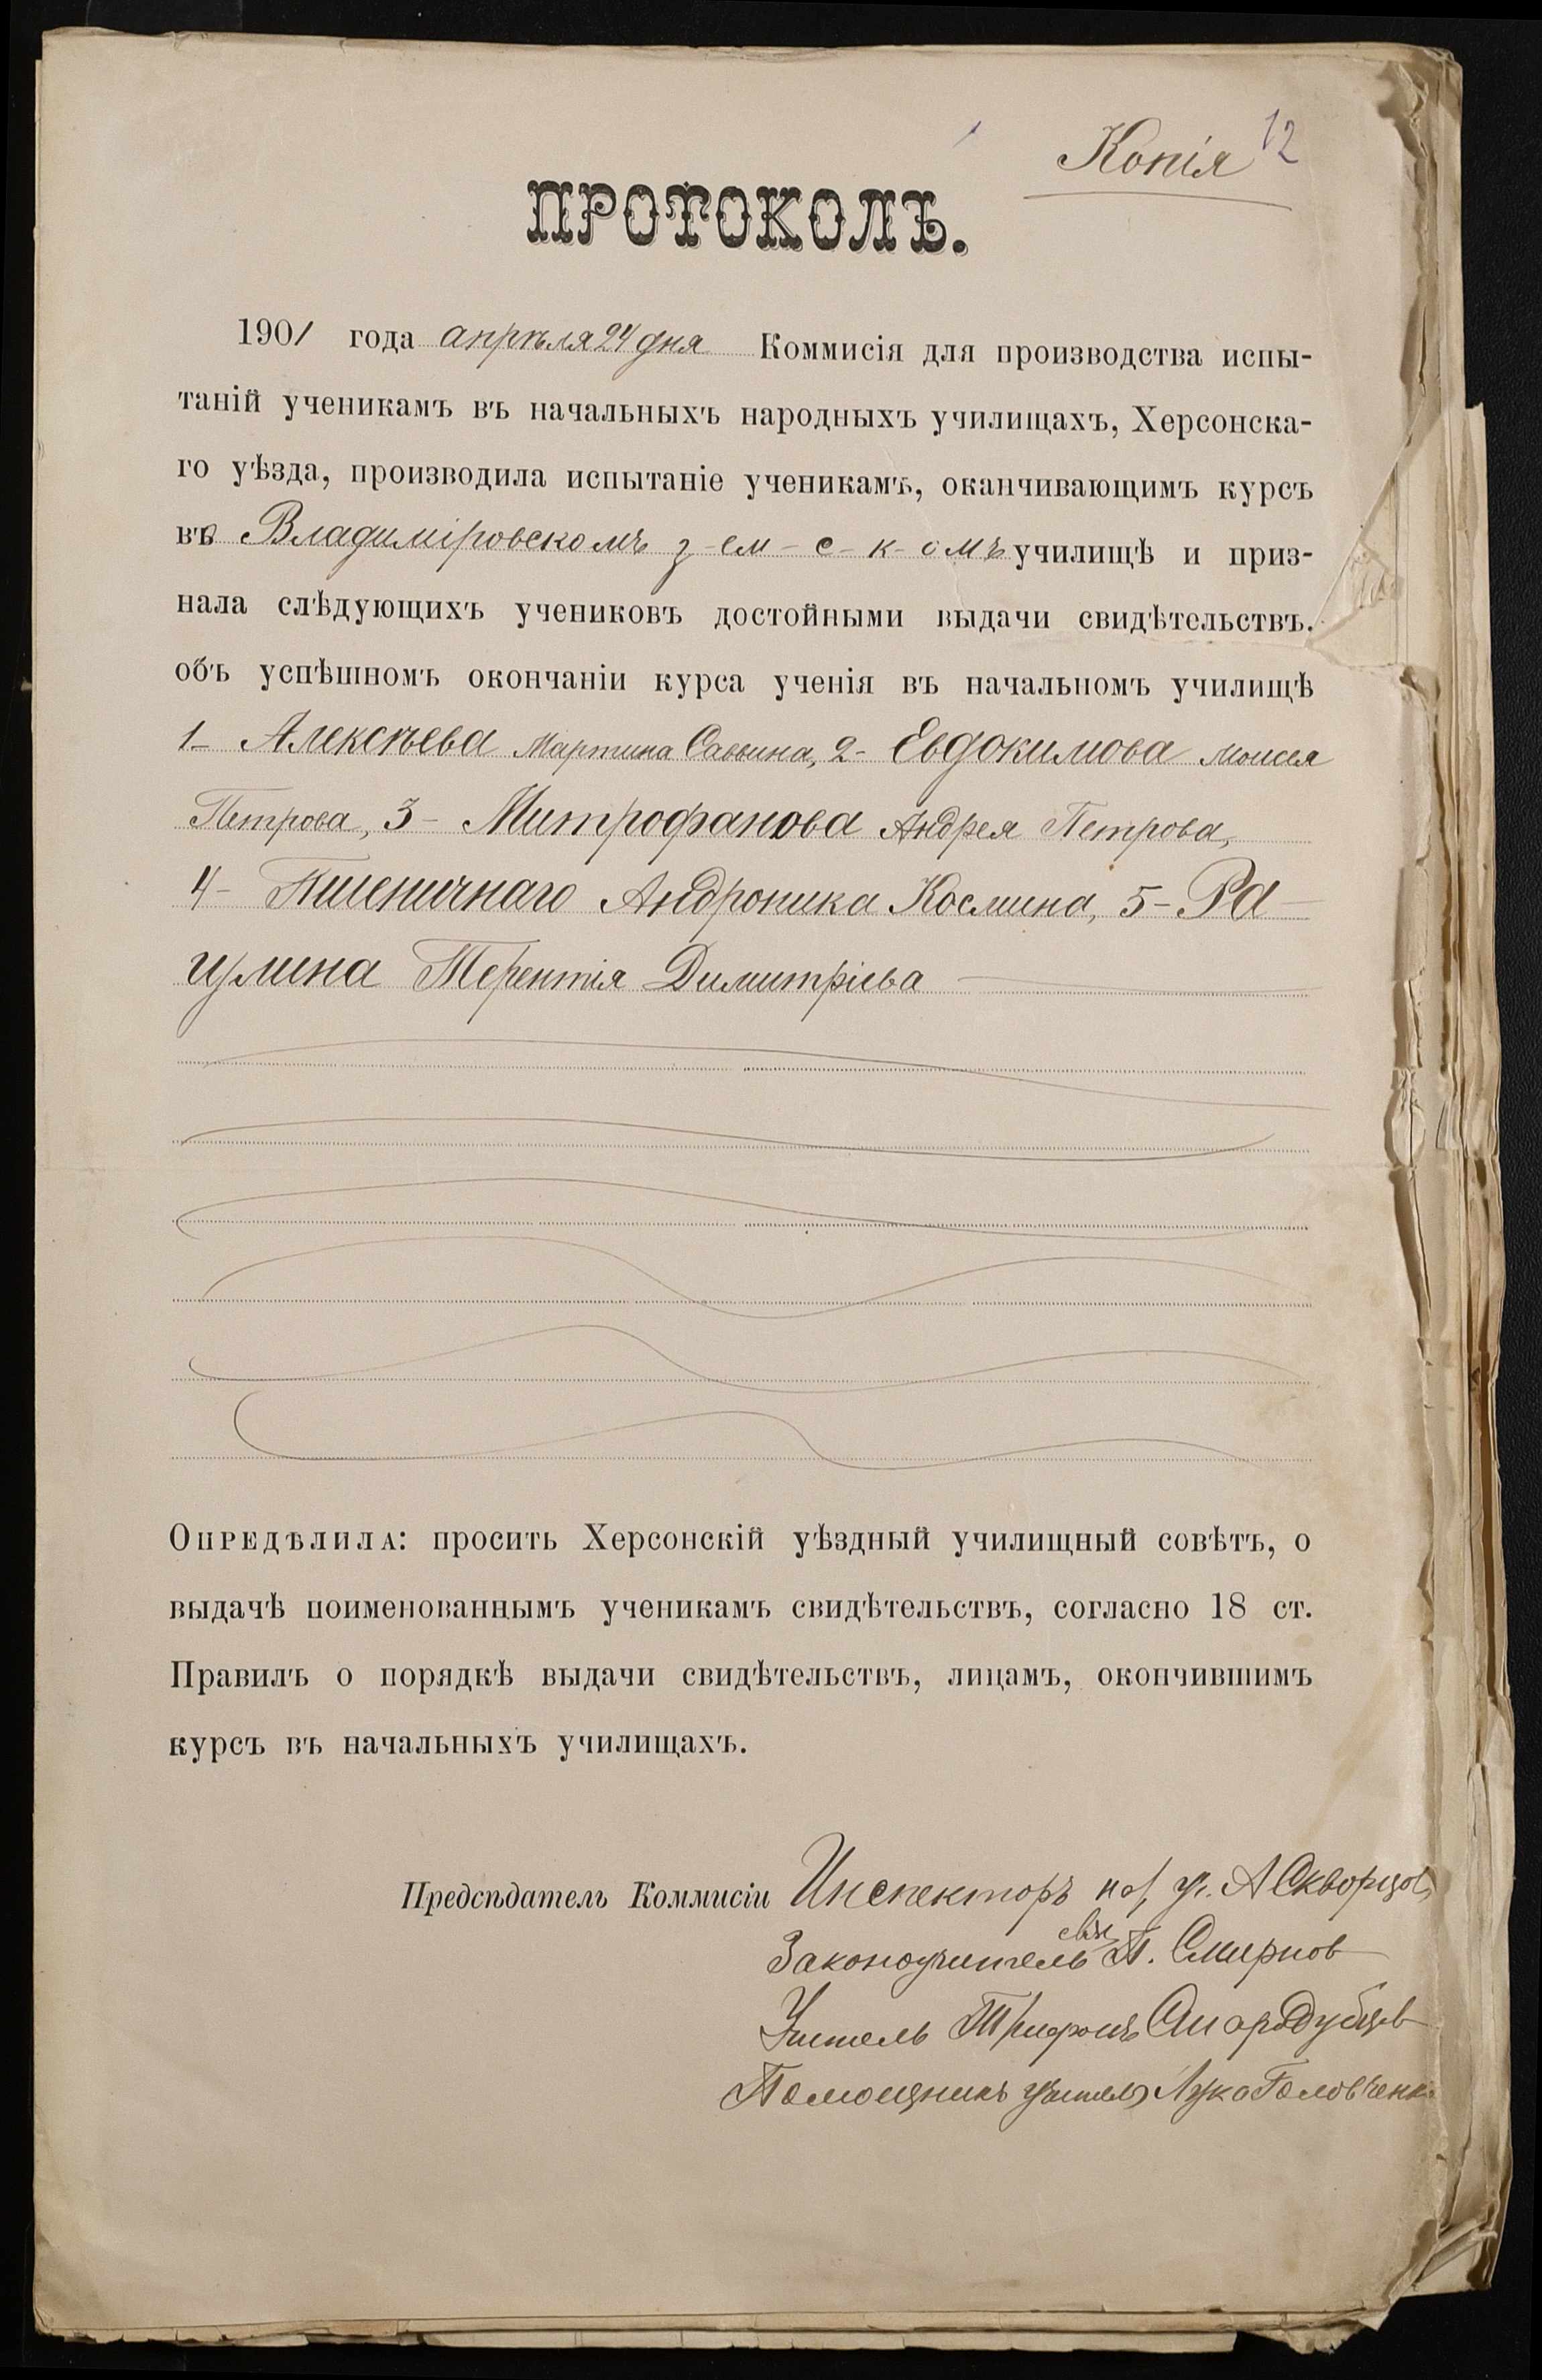 Копія 12
ПРОТОКОЛЪ.
1901 года апрѣля 24 дня Коммисія для производства испы-
таній ученикамъ въ начальныхъ народныхъ училищахъ, Херсонска-
го уѣзда, производила испытаніе ученикамъ, оканчивающимъ курсъ
въ Владиміровскомъ з-ем-с-к-омъ училищѣ и приз-
нала слѣдующихъ учениковъ достойными выдачи свидѣтельствъ.
объ успѣшномъ окончаніи курса ученія въ начальномъ училищѣ
1- Алексѣева Мартина Саввина, 2- Евдокимова Моисея
Петрова, 3- Митрофанова Андрея Петрова,
4- Пшеничнаго Андроника Космина, 5- Ра
цулина Терентія Димитріева
Опредѣлила: просить Херсонскій уѣздный училищный совѣтъ, о
выдачѣ поименованнымъ ученикамъ свидѣтельствъ, согласно 18 ст.
Правилъ о порядкѣ выдачи свидѣтельствъ, лицамъ, окончившимъ
курсъ въ начальныхъ училищахъ.
Предсѣдатель Коммисіи Инспекторъ н. уч. А Скворцов
Законоучитель свящ П. Смирнов
Учитель Трифонъ Стародубцев
Помощникъ учителя Лука Головченко